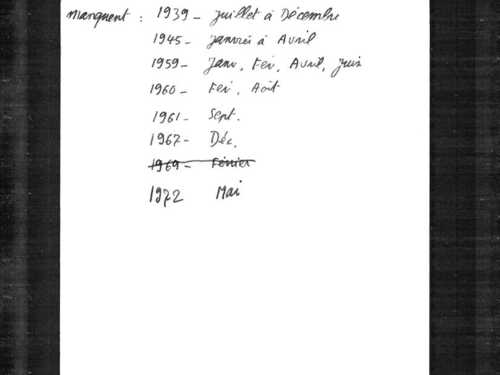 Manquent : 1939 - juillet à Décembre
1945 - janvier à Avril
1959 - Janv, Fév, Avril, juin
1960 - Fév, Août
1961 - Sept.
1967 - Déc.
1969 - Février
1972 Mai